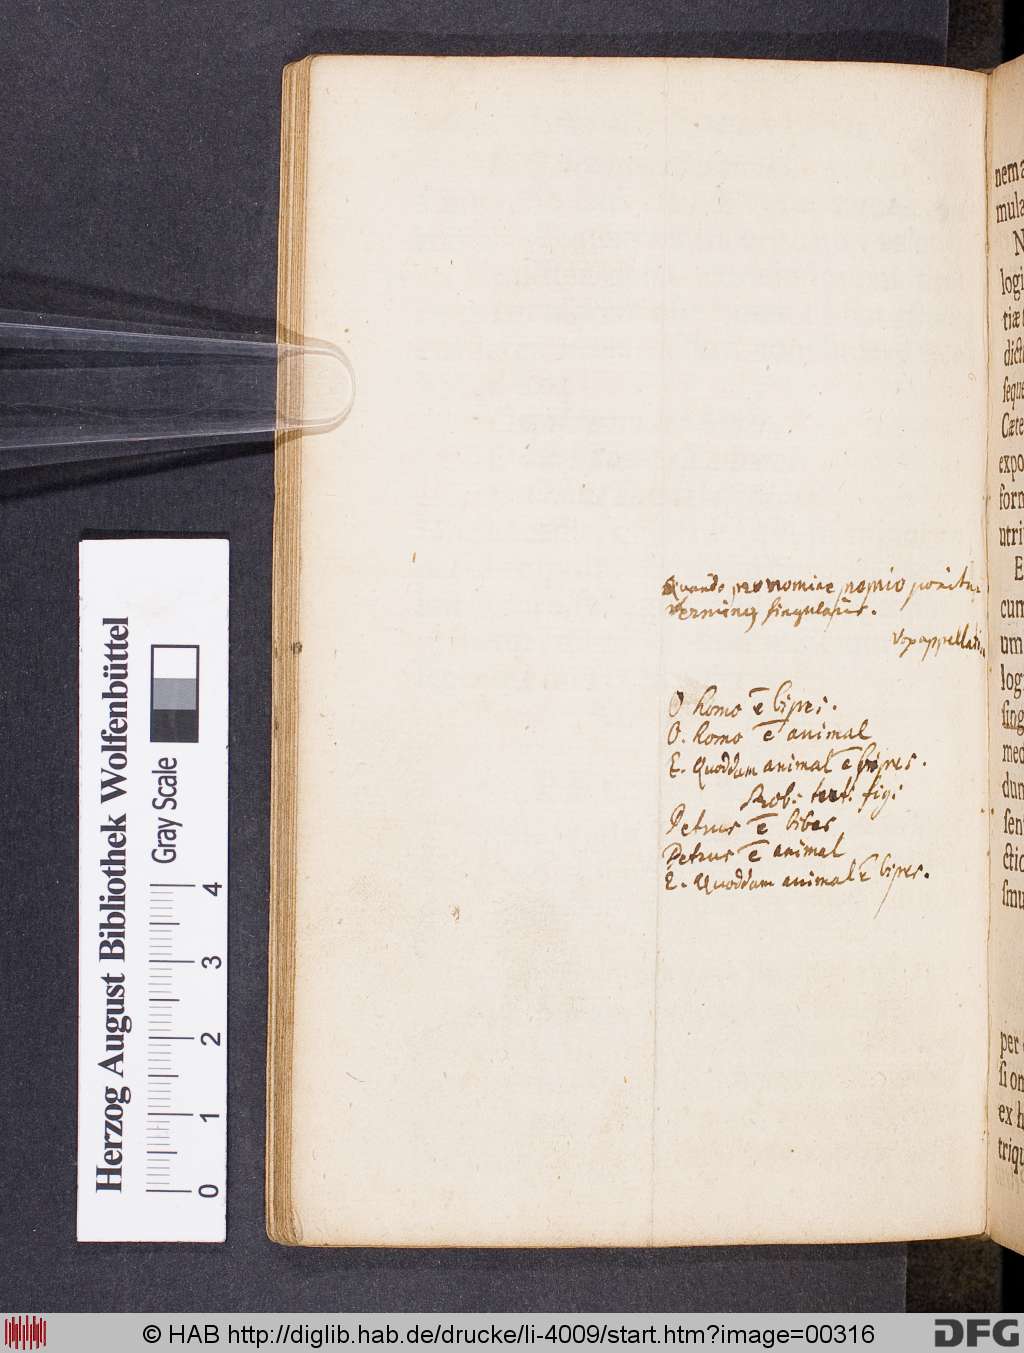 Quando pro nomine ponitur
terminus singularis.
Vox appellati
O homo ē bipes.
O. homo ē animal
E. Quoddam animal ē bipes.
Prob: tert: fig:
Petrus ē bibes
Petrus ē animal
E. Quoddam animal ē bipes.
nema
mula
N
logi
tiæ
dict
seque
Cæte
expo
form
utri
E
cum
um
log
sing
med
dum
sen
ctio
smu
per
si on
ex h
triqu
Herzog August Bibliothek Wolfenbüttel
Gray Scale
0 1 2 3 4
© HAB http://diglib.hab.de/drucke/li-4009/start.htm?image=00316
DFG